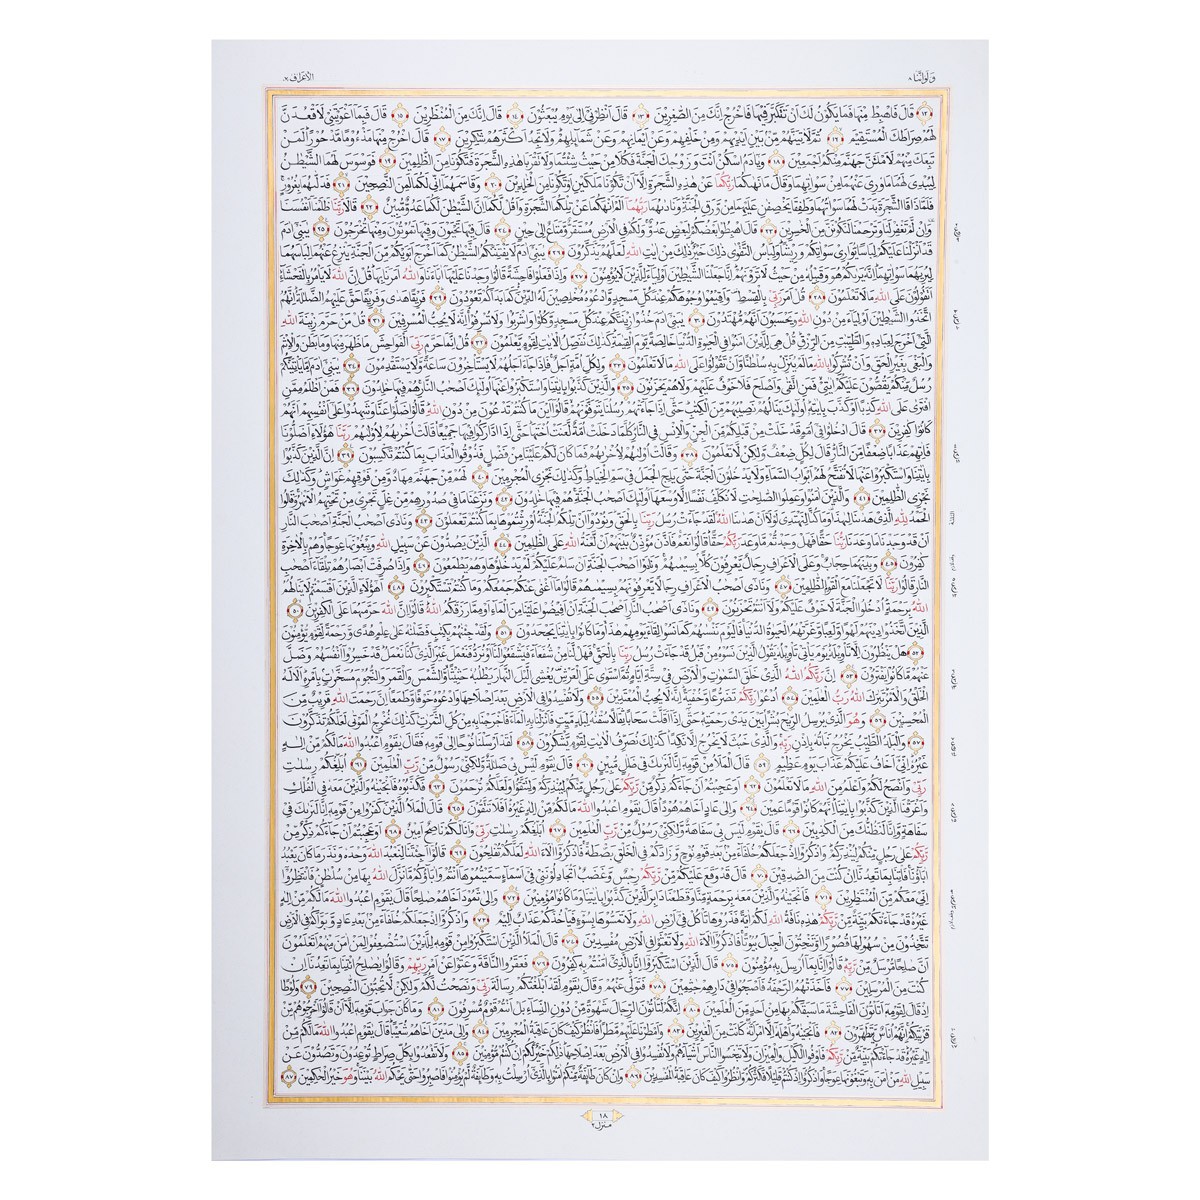 ولواننا ٨
الاعراف ٧
﴿١٢﴾ قال فاهبط منها فما يكون لك ان تتكبر فيها فاخرج انك من الصغرين ﴿١٣﴾ قال انظرني الى يوم يبعثون ﴿١٤﴾ قال انك من المنظرين ﴿١٥﴾ قال فبما اغويتني لاقعدن
لهم صراطك المستقيم ﴿١٦﴾ ثم لاتينهم من بين ايديهم ومن خلفهم وعن ايمانهم وعن شمائلهم ولا تجد اكثرهم شكرين ﴿١٧﴾ قال اخرج منها مذءوما مدحورا لمن
تبعك منهم لاملئن جهنم منكم اجمعين ﴿١٨﴾ ويادم اسكن انت وزوجك الجنة فكلا من حيث شئتما ولا تقربا هذه الشجرة فتكونا من الظلمين ﴿١٩﴾ فوسوس لهما الشيطن
ليبدي لهما ما وري عنهما من سواتهما وقال ما نهكما ربكما عن هذه الشجرة الا ان تكونا ملكين او تكونا من الخلدين ﴿٢٠﴾ وقاسمهما اني لكما لمن النصحين ﴿٢١﴾ فدلهما بغرور
فلما ذاقا الشجرة بدت لهما سواتهما وطفقا يخصفن عليهما من ورق الجنة ونادهما ربهما الم انهكما عن تلكما الشجرة واقل لكما ان الشيطن لكما عدو مبين ﴿٢٢﴾ قالا ربنا ظلمنا انفسنا
وان لم تغفر لنا وترحمنا لنكونن من الخسرين ﴿٢٣﴾ قال اهبطوا بعضكم لبعض عدو ولكم في الارض مستقر ومتاع الى حين ﴿٢٤﴾ قال فيها تحيون وفيها تموتون ومنها تخرجون ﴿٢٥﴾ يبني ادم
قد انزلنا عليكم لباسا يواري سواتكم وريشا ولباس التقوى ذلك خير ذلك من ايت الله لعلهم يذكرون ﴿٢٦﴾ يبني ادم لا يفتننكم الشيطن كما اخرج ابويكم من الجنة ينزع عنهما لباسهما
ليريهما سواتهما انه يركم هو وقبيله من حيث لا ترونهم انا جعلنا الشيطين اولياء للذين لا يؤمنون ﴿٢٧﴾ واذا فعلوا فاحشة قالوا وجدنا عليها اباءنا والله امرنا بها قل ان الله لا يامر بالفحشاء
اتقولون على الله ما لا تعلمون ﴿٢٨﴾ قل امر ربي بالقسط واقيموا وجوهكم عند كل مسجد وادعوه مخلصين له الدين كما بداكم تعودون ﴿٢٩﴾ فريقا هدى وفريقا حق عليهم الضللة انهم
اتخذوا الشيطين اولياء من دون الله ويحسبون انهم مهتدون ﴿٣٠﴾ يبني ادم خذوا زينتكم عند كل مسجد وكلوا واشربوا ولا تسرفوا انه لا يحب المسرفين ﴿٣١﴾ قل من حرم زينة الله
التي اخرج لعباده والطيبت من الرزق قل هي للذين امنوا في الحيوة الدنيا خالصة يوم القيمة كذلك نفصل الايت لقوم يعلمون ﴿٣٢﴾ قل انما حرم ربي الفواحش ما ظهر منها وما بطن والاثم
والبغي بغير الحق وان تشركوا بالله ما لم ينزل به سلطنا وان تقولوا على الله ما لا تعلمون ﴿٣٣﴾ ولكل امة اجل فاذا جاء اجلهم لا يستاخرون ساعة ولا يستقدمون ﴿٣٤﴾ يبني ادم اما ياتينكم
رسل منكم يقصون عليكم ايتي فمن اتقى واصلح فلا خوف عليهم ولا هم يحزنون ﴿٣٥﴾ والذين كذبوا بايتنا واستكبروا عنها اولئك اصحب النار هم فيها خلدون ﴿٣٦﴾ فمن اظلم ممن
افترى على الله كذبا او كذب بايته اولئك ينالهم نصيبهم من الكتب حتى اذا جاءتهم رسلنا يتوفونهم قالوا اين ما كنتم تدعون من دون الله قالوا ضلوا عنا وشهدوا على انفسهم انهم
كانوا كفرين ﴿٣٧﴾ قال ادخلوا في امم قد خلت من قبلكم من الجن والانس في النار كلما دخلت امة لعنت اختها حتى اذا اداركوا فيها جميعا قالت اخرهم لاولهم ربنا هؤلاء اضلونا
فاتهم عذابا ضعفا من النار قال لكل ضعف ولكن لا تعلمون ﴿٣٨﴾ وقالت اولهم لاخرهم فما كان لكم علينا من فضل فذوقوا العذاب بما كنتم تكسبون ﴿٣٩﴾ ان الذين كذبوا
بايتنا واستكبروا عنها لا تفتح لهم ابواب السماء ولا يدخلون الجنة حتى يلج الجمل في سم الخياط وكذلك نجزي المجرمين ﴿٤٠﴾ لهم من جهنم مهاد ومن فوقهم غواش وكذلك
نجزي الظلمين ﴿٤١﴾ والذين امنوا وعملوا الصلحت لا نكلف نفسا الا وسعها اولئك اصحب الجنة هم فيها خلدون ﴿٤٢﴾ ونزعنا ما في صدورهم من غل تجري من تحتهم الانهر وقالوا
الحمد لله الذي هدنا لهذا وما كنا لنهتدي لولا ان هدنا الله لقد جاءت رسل ربنا بالحق ونودوا ان تلكم الجنة اورثتموها بما كنتم تعملون ﴿٤٣﴾ ونادى اصحب الجنة اصحب النار
ان قد وجدنا ما وعدنا ربنا حقا فهل وجدتم ما وعد ربكم حقا قالوا نعم فاذن مؤذن بينهم ان لعنة الله على الظلمين ﴿٤٤﴾ الذين يصدون عن سبيل الله ويبغونها عوجا وهم بالاخرة
كفرون ﴿٤٥﴾ وبينهما حجاب وعلى الاعراف رجال يعرفون كلا بسيمهم ونادوا اصحب الجنة ان سلم عليكم لم يدخلوها وهم يطمعون ﴿٤٦﴾ واذا صرفت ابصارهم تلقاء اصحب
النار قالوا ربنا لا تجعلنا مع القوم الظلمين ﴿٤٧﴾ ونادى اصحب الاعراف رجالا يعرفونهم بسيمهم قالوا ما اغنى عنكم جمعكم وما كنتم تستكبرون ﴿٤٨﴾ اهؤلاء الذين اقسمتم لا ينالهم
الله برحمة ادخلوا الجنة لا خوف عليكم ولا انتم تحزنون ﴿٤٩﴾ ونادى اصحب النار اصحب الجنة ان افيضوا علينا من الماء او مما رزقكم الله قالوا ان الله حرمهما على الكفرين ﴿٥٠﴾
الذين اتخذوا دينهم لهوا ولعبا وغرتهم الحيوة الدنيا فاليوم ننسهم كما نسوا لقاء يومهم هذا وما كانوا بايتنا يجحدون ﴿٥١﴾ ولقد جئنهم بكتب فصلنه على علم هدى ورحمة لقوم يؤمنون
﴿٥٢﴾ هل ينظرون الا تاويله يوم ياتي تاويله يقول الذين نسوه من قبل قد جاءت رسل ربنا بالحق فهل لنا من شفعاء فيشفعوا لنا او نرد فنعمل غير الذي كنا نعمل قد خسروا انفسهم وضل
عنهم ما كانوا يفترون ﴿٥٣﴾ ان ربكم الله الذي خلق السموت والارض في ستة ايام ثم استوى على العرش يغشي اليل النهار يطلبه حثيثا والشمس والقمر والنجوم مسخرت بامره الا له
الخلق والامر تبرك الله رب العلمين ﴿٥٤﴾ ادعوا ربكم تضرعا وخفية انه لا يحب المعتدين ﴿٥٥﴾ ولا تفسدوا في الارض بعد اصلاحها وادعوه خوفا وطمعا ان رحمت الله قريب من
المحسنين ﴿٥٦﴾ وهو الذي يرسل الريح بشرا بين يدي رحمته حتى اذا اقلت سحابا ثقالا سقنه لبلد ميت فانزلنا به الماء فاخرجنا به من كل الثمرت كذلك نخرج الموتى لعلكم تذكرون
﴿٥٧﴾ والبلد الطيب يخرج نباته باذن ربه والذي خبث لا يخرج الا نكدا كذلك نصرف الايت لقوم يشكرون ﴿٥٨﴾ لقد ارسلنا نوحا الى قومه فقال يقوم اعبدوا الله ما لكم من اله
غيره اني اخاف عليكم عذاب يوم عظيم ﴿٥٩﴾ قال الملا من قومه انا لنرك في ضلل مبين ﴿٦٠﴾ قال يقوم ليس بي ضللة ولكني رسول من رب العلمين ﴿٦١﴾ ابلغكم رسلت
ربي وانصح لكم واعلم من الله ما لا تعلمون ﴿٦٢﴾ اوعجبتم ان جاءكم ذكر من ربكم على رجل منكم لينذركم ولتتقوا ولعلكم ترحمون ﴿٦٣﴾ فكذبوه فانجينه والذين معه في الفلك
واغرقنا الذين كذبوا بايتنا انهم كانوا قوما عمين ﴿٦٤﴾ والى عاد اخاهم هودا قال يقوم اعبدوا الله ما لكم من اله غيره افلا تتقون ﴿٦٥﴾ قال الملا الذين كفروا من قومه انا لنرك في
سفاهة وانا لنظنك من الكذبين ﴿٦٦﴾ قال يقوم ليس بي سفاهة ولكني رسول من رب العلمين ﴿٦٧﴾ ابلغكم رسلت ربي وانا لكم ناصح امين ﴿٦٨﴾ اوعجبتم ان جاءكم ذكر من
ربكم على رجل منكم لينذركم واذكروا اذ جعلكم خلفاء من بعد قوم نوح وزادكم في الخلق بصطة فاذكروا الاء الله لعلكم تفلحون ﴿٦٩﴾ قالوا اجئتنا لنعبد الله وحده ونذر ما كان يعبد
اباؤنا فاتنا بما تعدنا ان كنت من الصدقين ﴿٧٠﴾ قال قد وقع عليكم من ربكم رجس وغضب اتجادلونني في اسماء سميتموها انتم واباؤكم ما نزل الله بها من سلطن فانتظروا
اني معكم من المنتظرين ﴿٧١﴾ فانجينه والذين معه برحمة منا وقطعنا دابر الذين كذبوا بايتنا وما كانوا مؤمنين ﴿٧٢﴾ والى ثمود اخاهم صلحا قال يقوم اعبدوا الله ما لكم من اله
غيره قد جاءتكم بينة من ربكم هذه ناقة الله لكم اية فذروها تاكل في ارض الله ولا تمسوها بسوء فياخذكم عذاب اليم ﴿٧٣﴾ واذكروا اذ جعلكم خلفاء من بعد عاد وبواكم في الارض
تتخذون من سهولها قصورا وتنحتون الجبال بيوتا فاذكروا الاء الله ولا تعثوا في الارض مفسدين ﴿٧٤﴾ قال الملا الذين استكبروا من قومه للذين استضعفوا لمن امن منهم اتعلمون
ان صلحا مرسل من ربه قالوا انا بما ارسل به مؤمنون ﴿٧٥﴾ قال الذين استكبروا انا بالذي امنتم به كفرون ﴿٧٦﴾ فعقروا الناقة وعتوا عن امر ربهم وقالوا يصلح ائتنا بما تعدنا ان
كنت من المرسلين ﴿٧٧﴾ فاخذتهم الرجفة فاصبحوا في دارهم جثمين ﴿٧٨﴾ فتولى عنهم وقال يقوم لقد ابلغتكم رسالة ربي ونصحت لكم ولكن لا تحبون النصحين ﴿٧٩﴾ ولوطا
اذ قال لقومه اتاتون الفاحشة ما سبقكم بها من احد من العلمين ﴿٨٠﴾ انكم لتاتون الرجال شهوة من دون النساء بل انتم قوم مسرفون ﴿٨١﴾ وما كان جواب قومه الا ان قالوا اخرجوهم من
قريتكم انهم اناس يتطهرون ﴿٨٢﴾ فانجينه واهله الا امراته كانت من الغبرين ﴿٨٣﴾ وامطرنا عليهم مطرا فانظر كيف كان عاقبة المجرمين ﴿٨٤﴾ والى مدين اخاهم شعيبا قال يقوم اعبدوا الله ما لكم من
اله غيره قد جاءتكم بينة من ربكم فاوفوا الكيل والميزان ولا تبخسوا الناس اشياءهم ولا تفسدوا في الارض بعد اصلاحها ذلكم خير لكم ان كنتم مؤمنين ﴿٨٥﴾ ولا تقعدوا بكل صراط توعدون وتصدون عن
سبيل الله من امن به وتبغونها عوجا واذكروا اذ كنتم قليلا فكثركم وانظروا كيف كان عاقبة المفسدين ﴿٨٦﴾ وان كان طائفة منكم امنوا بالذي ارسلت به وطائفة لم يؤمنوا فاصبروا حتى يحكم الله بيننا وهو خير الحكمين ﴿٨٧﴾
١٨
منزل ٢